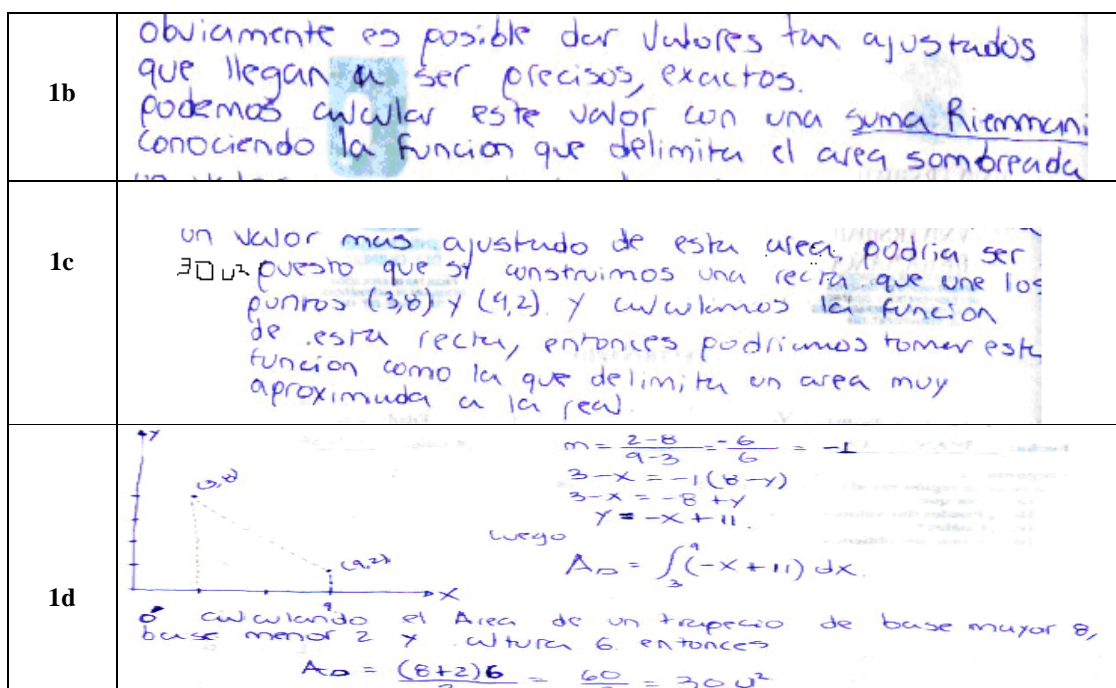 1b
obviamente es posible dar valores tan ajustados
que llegan a ser precisos, exactos.
podemos calcular este valor con una suma Riemmani
conociendo la funcion que delimita el area sombreada
un valor
1c
un valor mas ajustado de esta area podria ser
30 u² puesto que si construimos una recta que une los
puntos (3,8) y (9,2). y calculamos la funcion
de esta recta, entonces podriamos tomar esta
funcion como la que delimita un area muy
aproximada a la real.
1d
+Y
(3,8)
(9,2)
9
X
m = \frac{2-8}{9-3} = \frac{-6}{6} = -1
3-x = -1(8-y)
3-x = -8+y
y = -x+11.
Luego
A = ∫₃⁹(-x+11) dx.
ó calculando el Area de un trapecio de base mayor 8,
base menor 2 y altura 6. entonces
A = \frac{(8+2)6}{2} = \frac{60}{2} = 30 U²